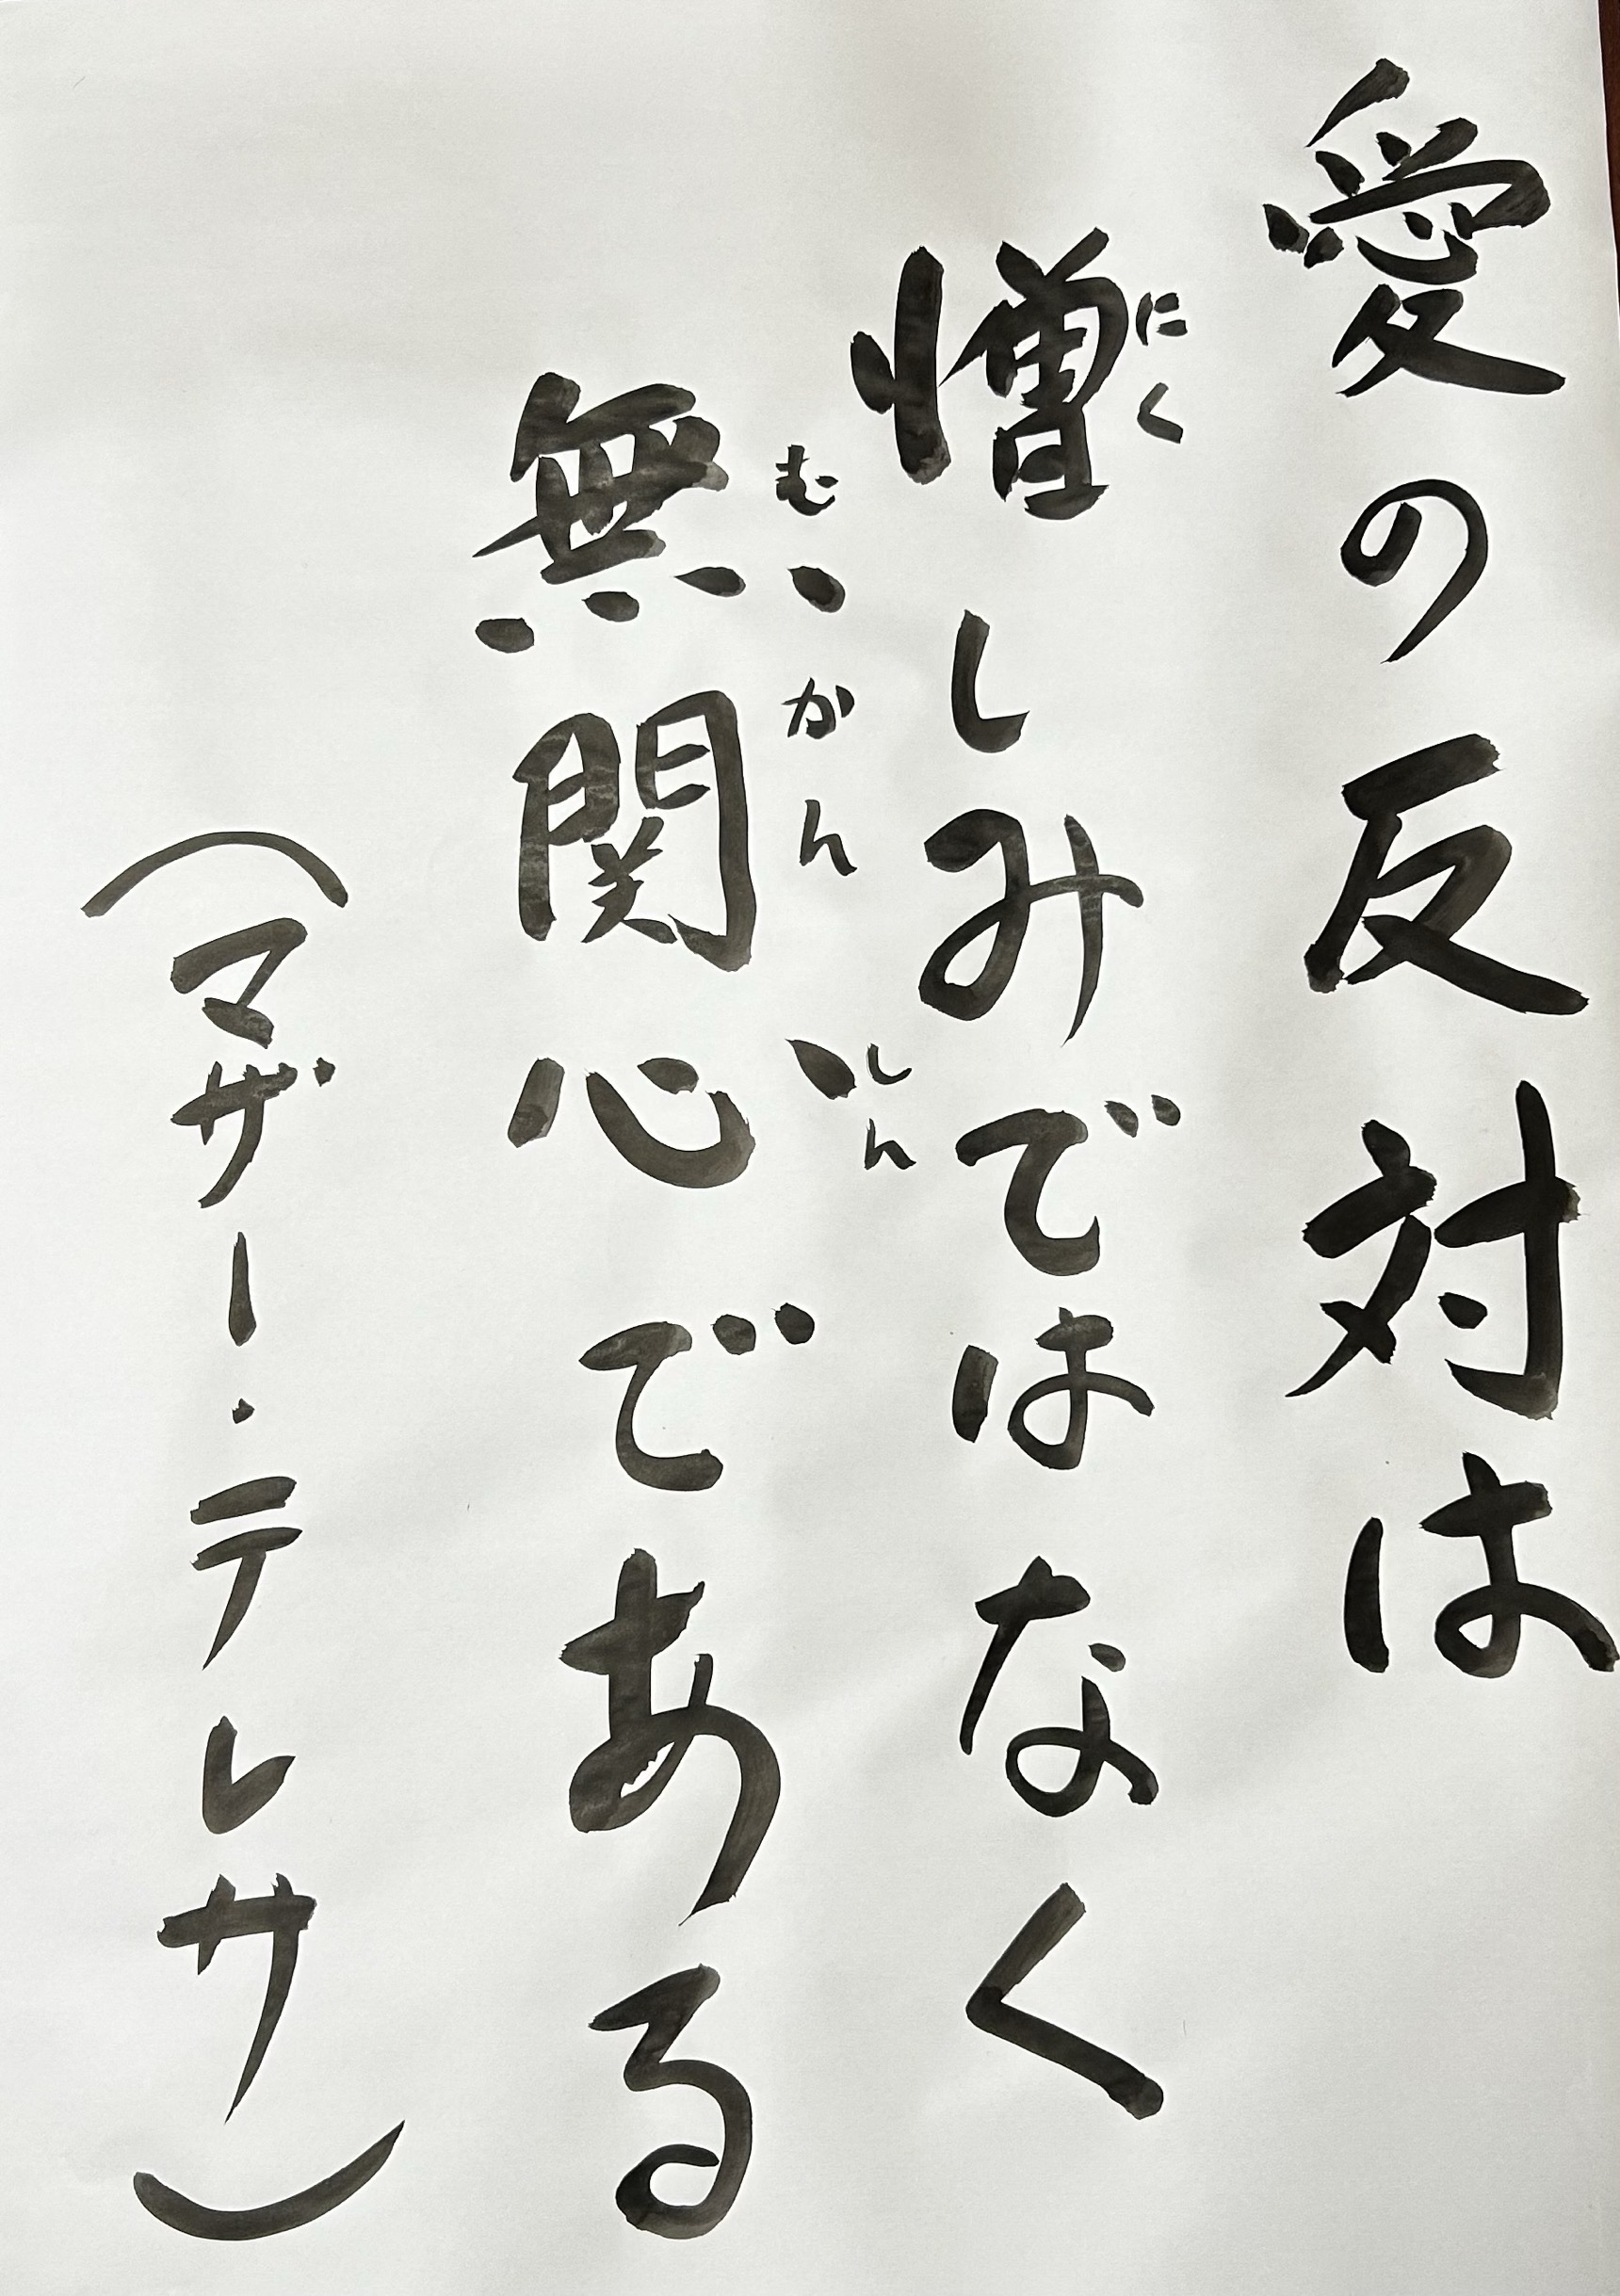 愛の反対は
憎しみではなく
にく
無関心である
むかんしん
（マザー・テレサ）